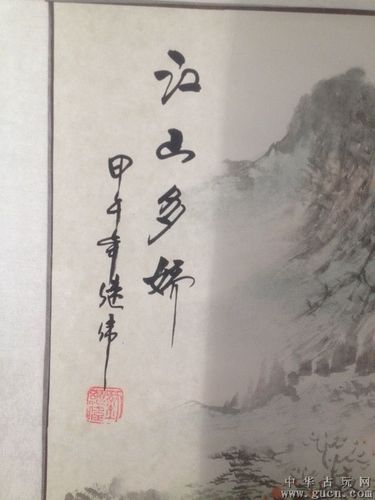 江山多娇
甲午年继伟
中华古玩网
www.gucn.com